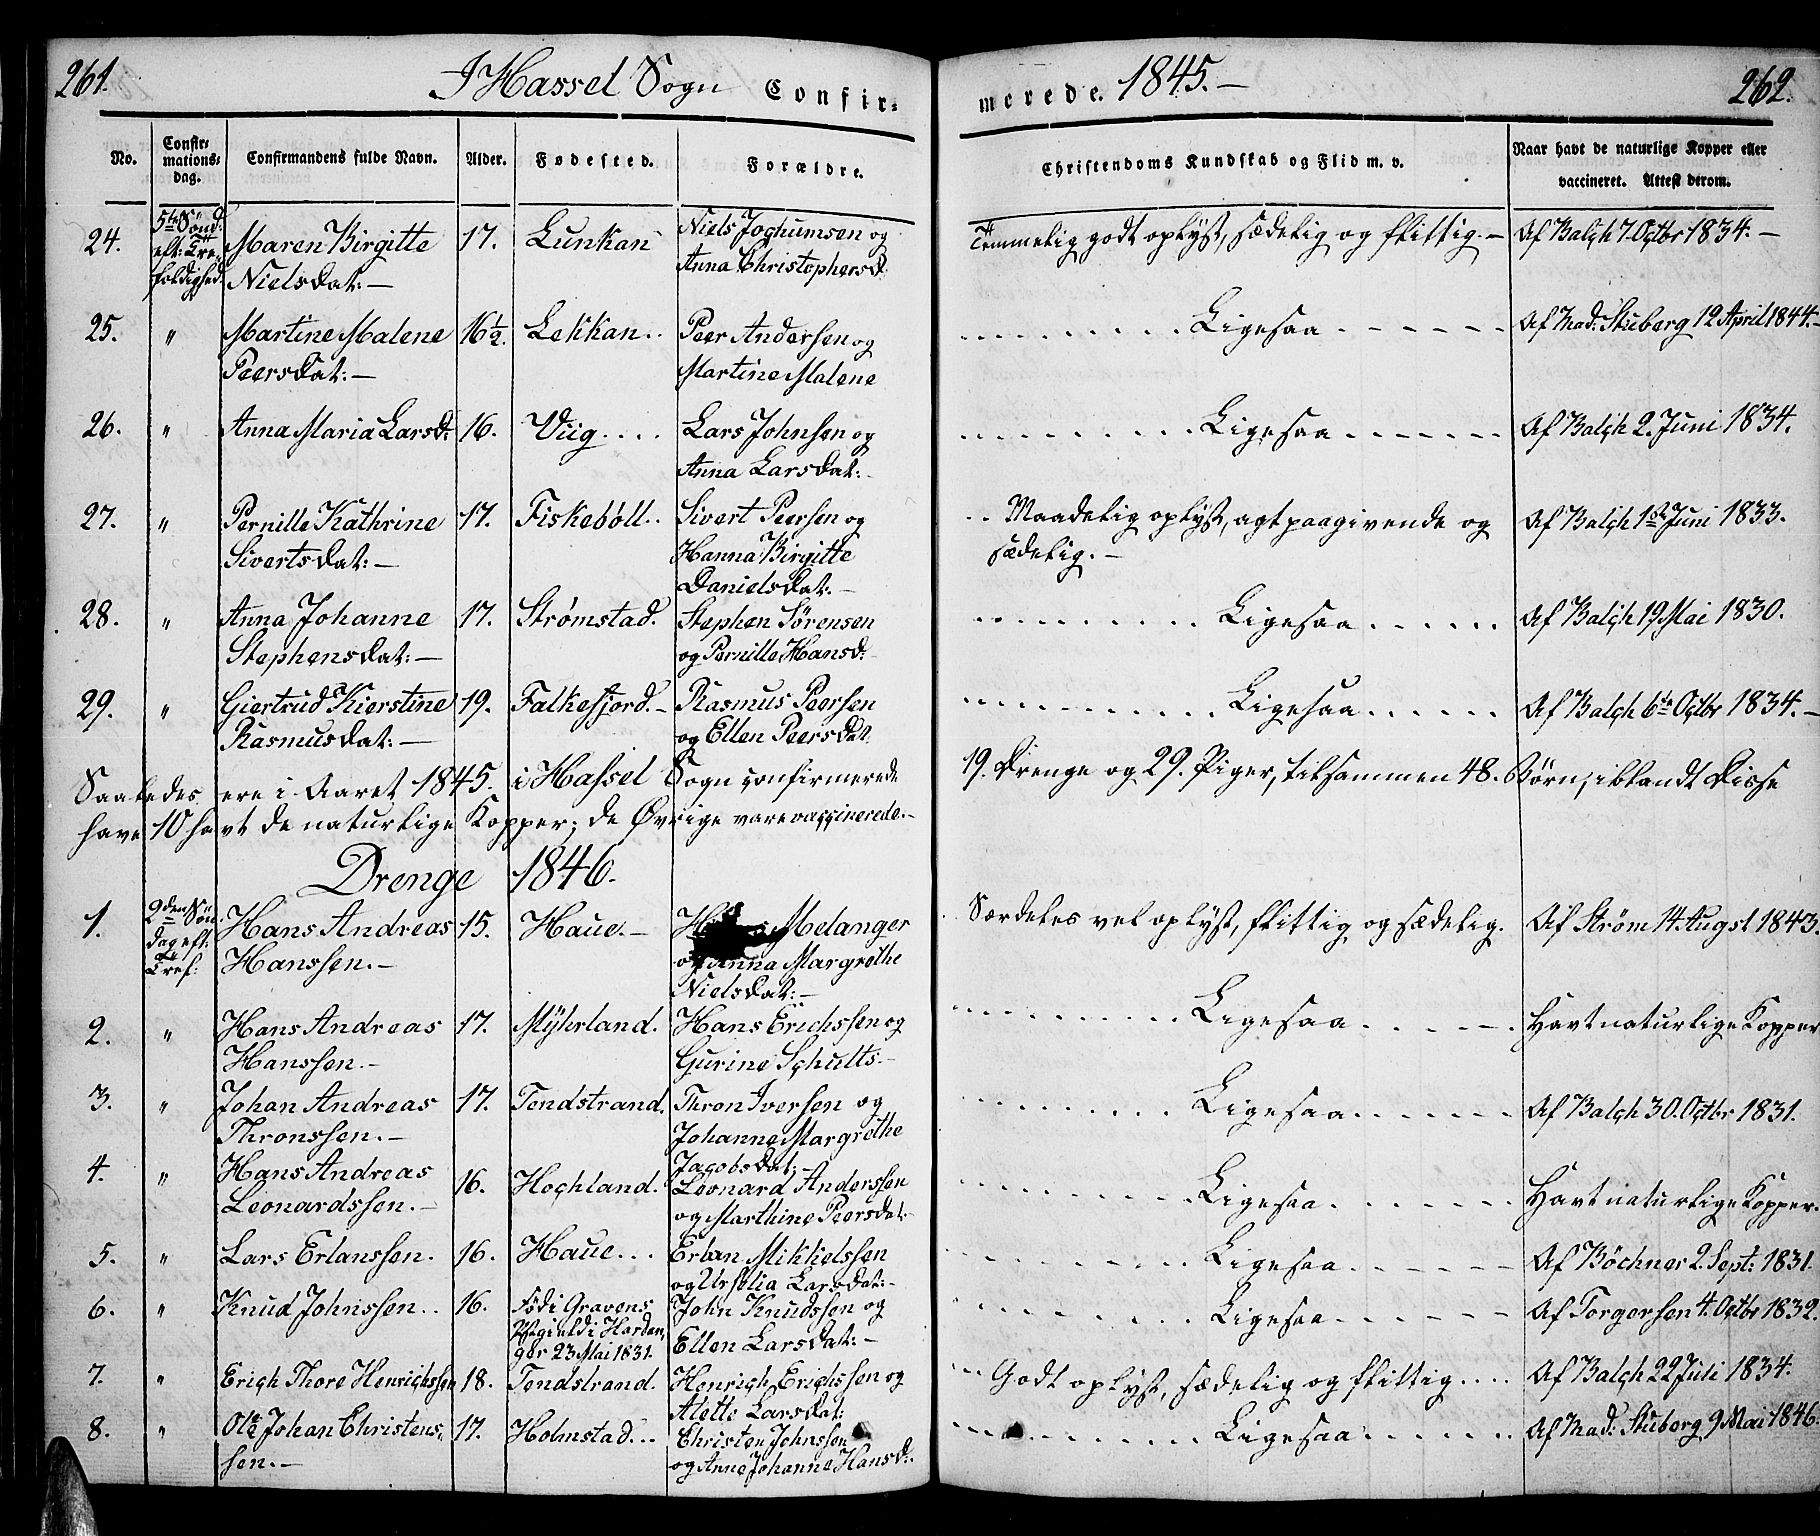 261.
I Hassel Sogn Confir-
No. Confir-mations-dag. Confirmandens fulde Navn. Alder. Fødested. Forældre.
24. 5te Sönd: Maren Birgitte 17. Lunkan Niels Jochumsen og
eft: Tre- Nielsdat:— Anna Christophersd.
foldighed.
25. " Martine Malene 16½. Lekkan.. Peer Andersen og
Peersdat:— Martine Malene
26. " Anna Maria Larsd: 16. Viig.... Lars Johnsen og
Anna Larsdat:
27. " Pernille Kathrine 17. Fiskeböll.. Sivert Peersen og
Sivertsdat:— Hanna Birgitte
Danielsdat:
28. " Anna Johanne 17. Strømstad. Stephen Sörensen
Stephensdat:— og Pernille Hansd:
29. " Giertrud Kierstine 19. Falkefjord.- Rasmus Peersen
Rasmusdat:— og Ellen Peersdat
Saaledes ere i Aaret 1845. i Hassel Sogn confirmerede
have 10 havt de naturlige Kopper; de Øvrige vare vaccinerede.-
Drenge 1846.
1. 2den Sön- Hans Andreas 15. Haue.- Melanger
dag eft: Hanssen.- og Anna Margrethe
Tref: Nielsdat:-
2. " Hans Andreas 17. Myhrland. Hans Erichssen og
Hanssen.- Gurine Schults.-
3. " Johan Andreas 17. Tendstrand. Thron Iversen og
Thronssen.- Johanne Margrethe
Jacobsdat:
4. " Hans Andreas 16. Hochland. Leonard Anderssen
Leonardssen.- og Marthine Peersdat:
5. " Lars Erlanssen. 16. Haue... Erlan Mikkelssen
og Ursilia Larsdat:-
6. " Knud Johnssen.. 16. Föd i Gravens John Knudssen og
Prgield i Hardan- Ellen Larsdat:-
ger 23 Mai 1831.
7. " Erich Thore Henrichssen 18. Tendstrand. Henrich Erichssen og
Alette Larsdat:
8. " Ole Johan Christens- 17. Holmstad... Christen Johnssen
sen.- og Anne Johanne Hansd:
merede. 1845.- 262.
Christendoms Kundskab og Flid m. v. Naar havt de naturlige Kopper eller
vaccineret. Attest derom.
Temmelig godt oplyst, sædelig og flittig.- Af Balch 7 Octbr 1834.-
Ligesaa Af Mad: Stuberg 12 April 1844.-
Ligesaa Af Balch 2. Juni 1834.
Maadelig oplyst, agtpaagivende og Af Balch 1ste Juni 1833.
sædelig.-
Ligesaa Af Balch 19 Mai 1830.
Ligesaa Af Balch 6te Octbr 1834.-
19. Drenge og 29. Piger, tilsammen 48. Børn, iblandt Disse
Særdeles vel oplyst, flittig og sædelig. Af Ström 14 Augst 1843.
Ligesaa Havt naturlige Kopper
Ligesaa Af Balch 30. Octbr 1831.
Ligesaa Havt naturlige Kopper.
Ligesaa Af Böchner 2. Sept: 1831.
Ligesaa Af Torgersen 4. Octbr 1832.
Godt oplyst, sædelig og flittig.... Af Balch 22 Juli 1834.
Ligesaa Af Mad: Stuberg 9 Mai 1846